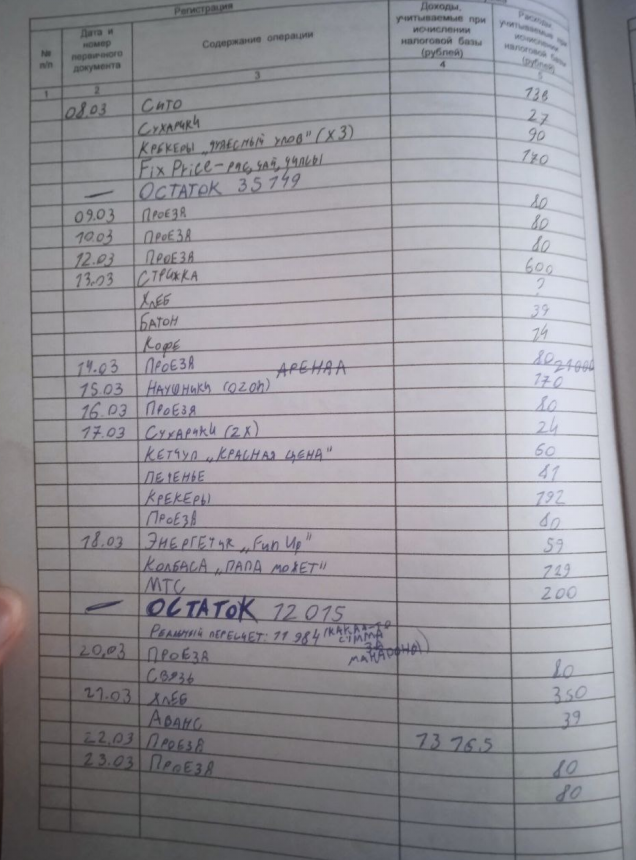 Регистрация
№ п/п
Дата и номер первичного документа
Содержание операции
Доходы, учитываемые при исчислении налоговой базы (рублей)
Расходы учитываемые при исчислении налоговой базы (рублей)
1 2 3 4 5
08.03 СИТО 138
СУХАРИКИ 27
КРЕКЕРЫ „ЧУДЕСНЫЙ УЛОВ" (X3) 90
FIX PRICE - РИС, ЧАЙ, ЧИПСЫ 170
— ОСТАТОК 35 149
09.03 ПРОЕЗД 80
10.03 ПРОЕЗД 80
12.03 ПРОЕЗД 80
13.03 СТРИЖКА 600
ХЛЕБ ?
БАТОН 39
КОФЕ 24
14.03 ПРОЕЗД АРЕНДА 80 21000
15.03 НАУШНИКИ (OZON) 170
16.03 ПРОЕЗД 80
17.03 СУХАРИКИ (2X) 24
КЕТЧУП „КРАСНАЯ ЦЕНА" 60
ПЕЧЕНЬЕ 41
КРЕКЕРЫ 192
ПРОЕЗД 80
18.03 ЭНЕРГЕТИК „Fun Up" 59
КОЛБАСА „ПАПА МОЖЕТ" 129
МТС 200
— ОСТАТОК 12 015
РЕАЛЬНЫЙ ПЕРЕСЧЕТ: 11 984 (КАКАЯ-ТО СУММА ЗА МАКАРОНЫ)
20.03 ПРОЕЗД 80
СВЯЗЬ 350
21.03 ХЛЕБ 39
АВАНС 13 765
22.03 ПРОЕЗД 80
23.03 ПРОЕЗД 80